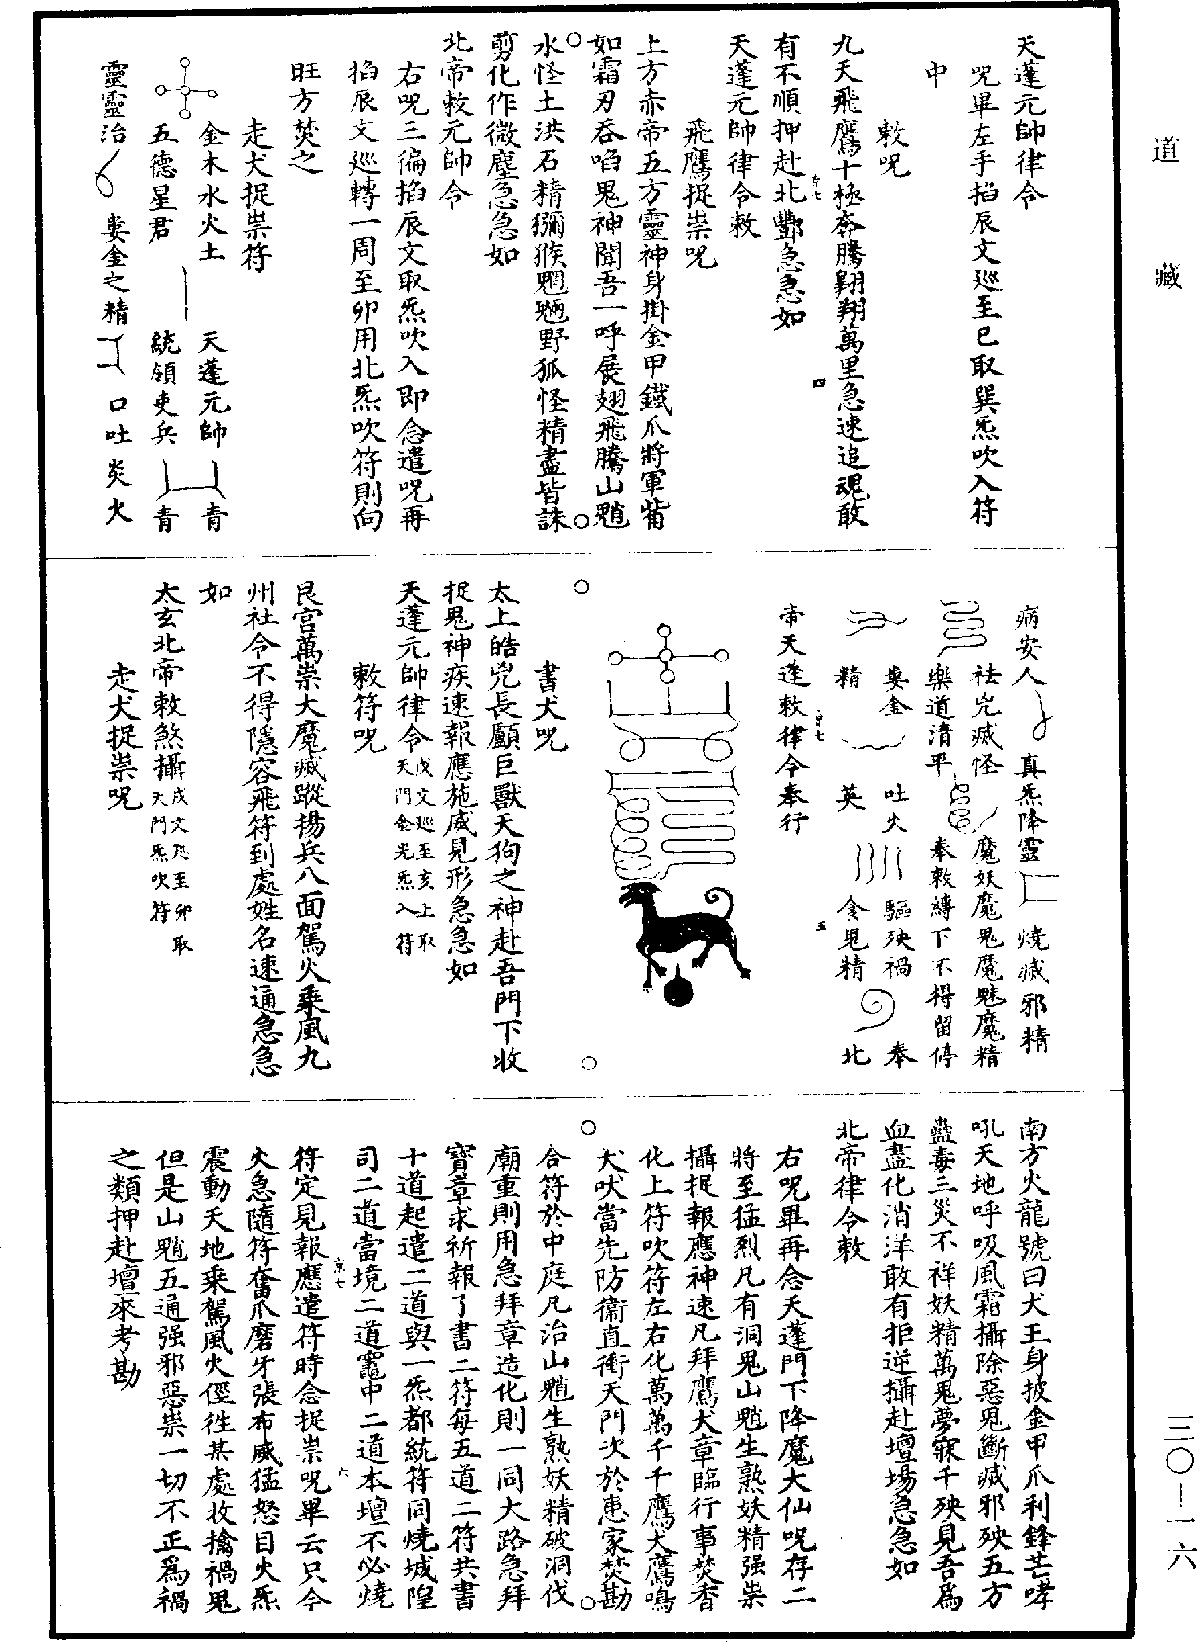 道藏
天蓬元帥律令
呪畢左手掐辰文巡至巳取巽炁吹入符
中
敕呪
九天飛鷹十極奔騰翱翔萬里急速追魂敢
有不順押赴北酆急急如
天蓬元帥律令敕
飛鷹捉祟呪
上方赤帝五方靈神身掛金甲鐵爪將軍觜
如霜刃吞啗鬼神聞吾一呼展翅飛騰山魈
水怪土洪石精獼猴魍魎野狐怪精盡皆誅
剪化作微塵急急如
北帝敕元帥令
右呪三徧掐辰文取炁吹入即念遣呪再
掐辰文巡轉一周至卯用北炁吹符則向
旺方焚之
走犬捉祟符
金木水火土 天蓬元帥 青
五德星君 統領吏兵 青
靈靈治 婁金之精 口吐炎火
病安人 真炁降靈 燒滅邪精
祛兇滅怪 魔妖魔鬼魔魅魔精
樂道清平 奉敕縛下不得留停
婁金 吐火 驅殃禍 奉
精 英 食鬼精 北
帝天蓬敕律令奉行
書犬呪
太上皓兇長顧巨獸天狗之神赴吾門下收
捉鬼神疾速報應施威見形急急如
天蓬元帥律令戌文巡至亥上取天門金光炁入符
敕符呪
艮宮萬祟大魔滅蹤揚兵八面駕火乘風九
州社令不得隱容飛符到處姓名速通急急
如
太玄北帝敕煞攝戌文巡至卯取天門炁吹符
走犬捉祟呪
南方火龍號曰犬王身披金甲爪利鋒芒哮
吼天地呼吸風霜攝除惡鬼斷滅邪殃五方
蠱毒三災不祥妖精萬鬼夢寐千殃見吾為
血盡化消洋敢有拒逆攝赴壇場急急如
北帝律令敕
右呪畢再念天蓬門下降魔大仙呪存二
將至猛烈凡有洞鬼山魈生熟妖精强祟
攝捉報應神速凡拜鷹犬章臨行事焚香
化上符吹符左右化萬萬千千鷹犬鷹鳴
犬吠當先防衛直衝天門次於患家焚勘
合符於中庭凡治山魈生熟妖精破洞伐
廟重則用急拜章造化則一同大路急拜
寶章求祈報了書二符每五道二符共書
十道起遣二道與一炁都統符同燒城隍
司二道當境二道竈中二道本壇不必燒
符定見報應遣符時念捉祟呪畢云只今
火急隨符奮爪磨牙張布威猛怒目火炁
震動天地乘駕風火徑往某處收擒禍鬼
但是山魈五通强邪惡祟一切不正爲禍
之類押赴壇來考勘
三〇—一六